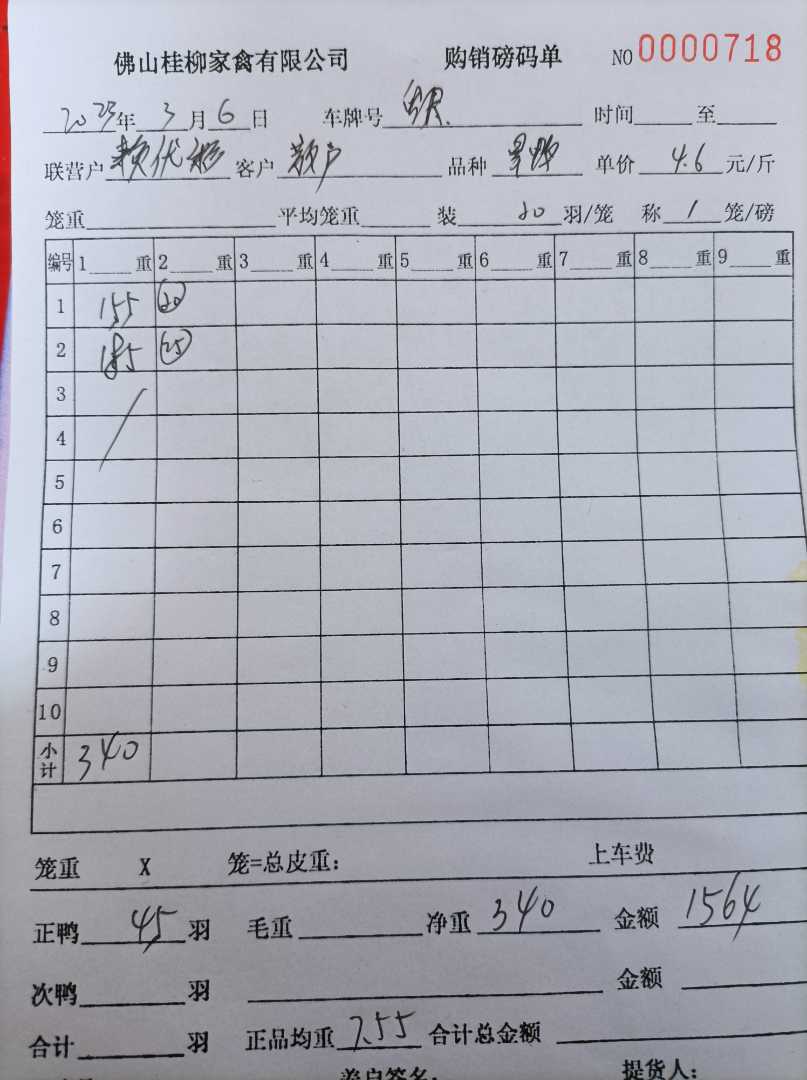 佛山桂柳家禽有限公司 购销磅码单 NO 0000718
2023年 3月6日 车牌号 时间 至
联营户 客户 散户 品种 单价 4.6 元/斤
笼重 平均笼重 装 20 羽/笼 称 1 笼/磅
编号 1 重 2 重 3 重 4 重 5 重 6 重 7 重 8 重 9 重
1 155 20
2 185 25
3
4
5
6
7
8
9
10
小计 340
笼重 X 笼=总皮重: 上车费
正鸭 45 羽 毛重 净重 340 金额 1564
次鸭 羽 金额
合计 羽 正品均重 7.55 合计总金额
提货人: